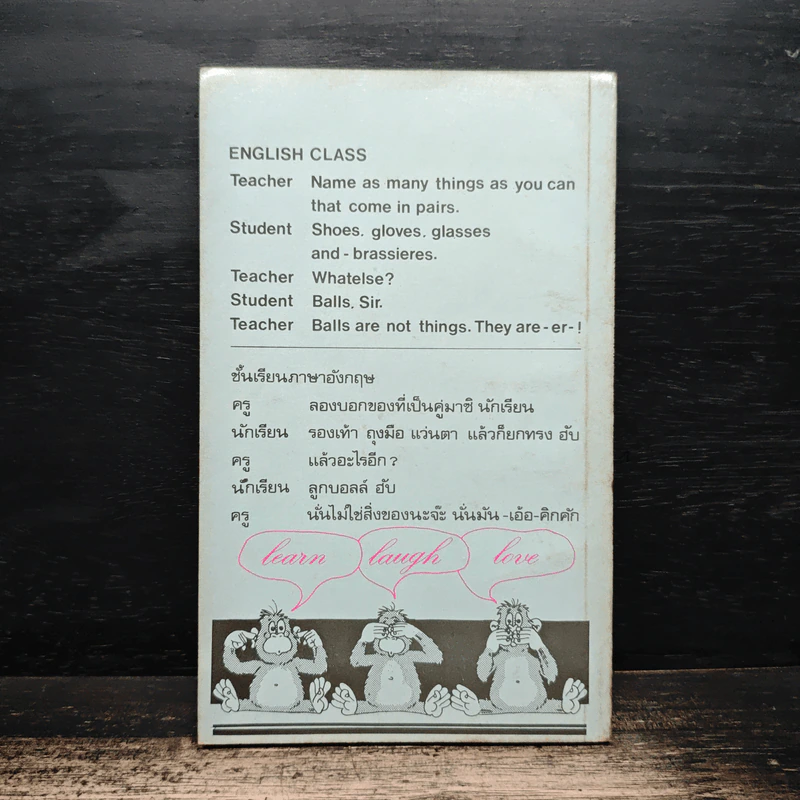 ENGLISH CLASS
Teacher Name as many things as you can
that come in pairs.
Student Shoes, gloves, glasses
and - brassieres.
Teacher Whatelse?
Student Balls, Sir.
Teacher Balls are not things. They are - er - !
ชั้นเรียนภาษาอังกฤษ
ครู ลองบอกของที่เป็นคู่มาซิ นักเรียน
นักเรียน รองเท้า ถุงมือ แว่นตา แล้วก็ยกทรง ฮับ
ครู แล้วอะไรอีก ?
นักเรียน ลูกบอลล์ ฮับ
ครู นั่นไม่ใช่สิ่งของนะจ๊ะ นั่นมัน -เอ้อ-คิกคัก
learn laugh love